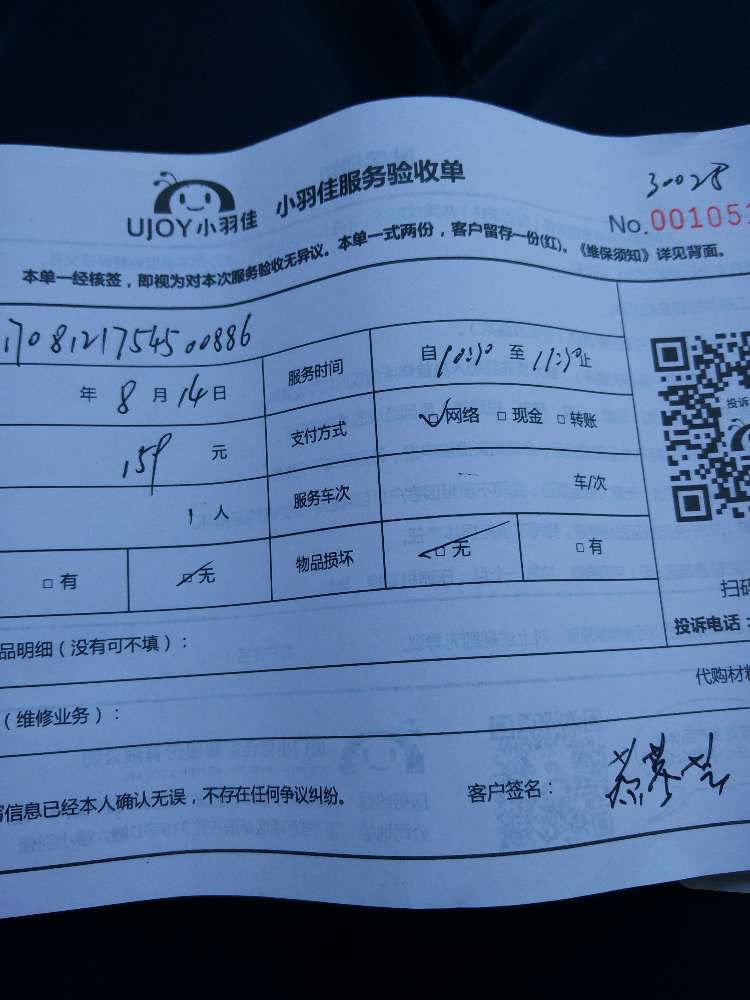 30028
UJOY小羽佳 小羽佳服务验收单
No.001051
本单一经核签，即视为对本次服务验收无异议。本单一式两份，客户留存一份(红)。《维保须知》详见背面。
1708121754500886
年 8 月 14 日 服务时间 自 10:30 至 11:30 止
159 元 支付方式 ☑网络 □现金 □转账
1 人 服务车次 车/次
□有 ☑无 物品损坏 ☑无 □有
投诉
扫码
投诉电话：
品明细（没有可不填）：
代购材料
（维修业务）：
信息已经本人确认无误，不存在任何争议纠纷。 客户签名：